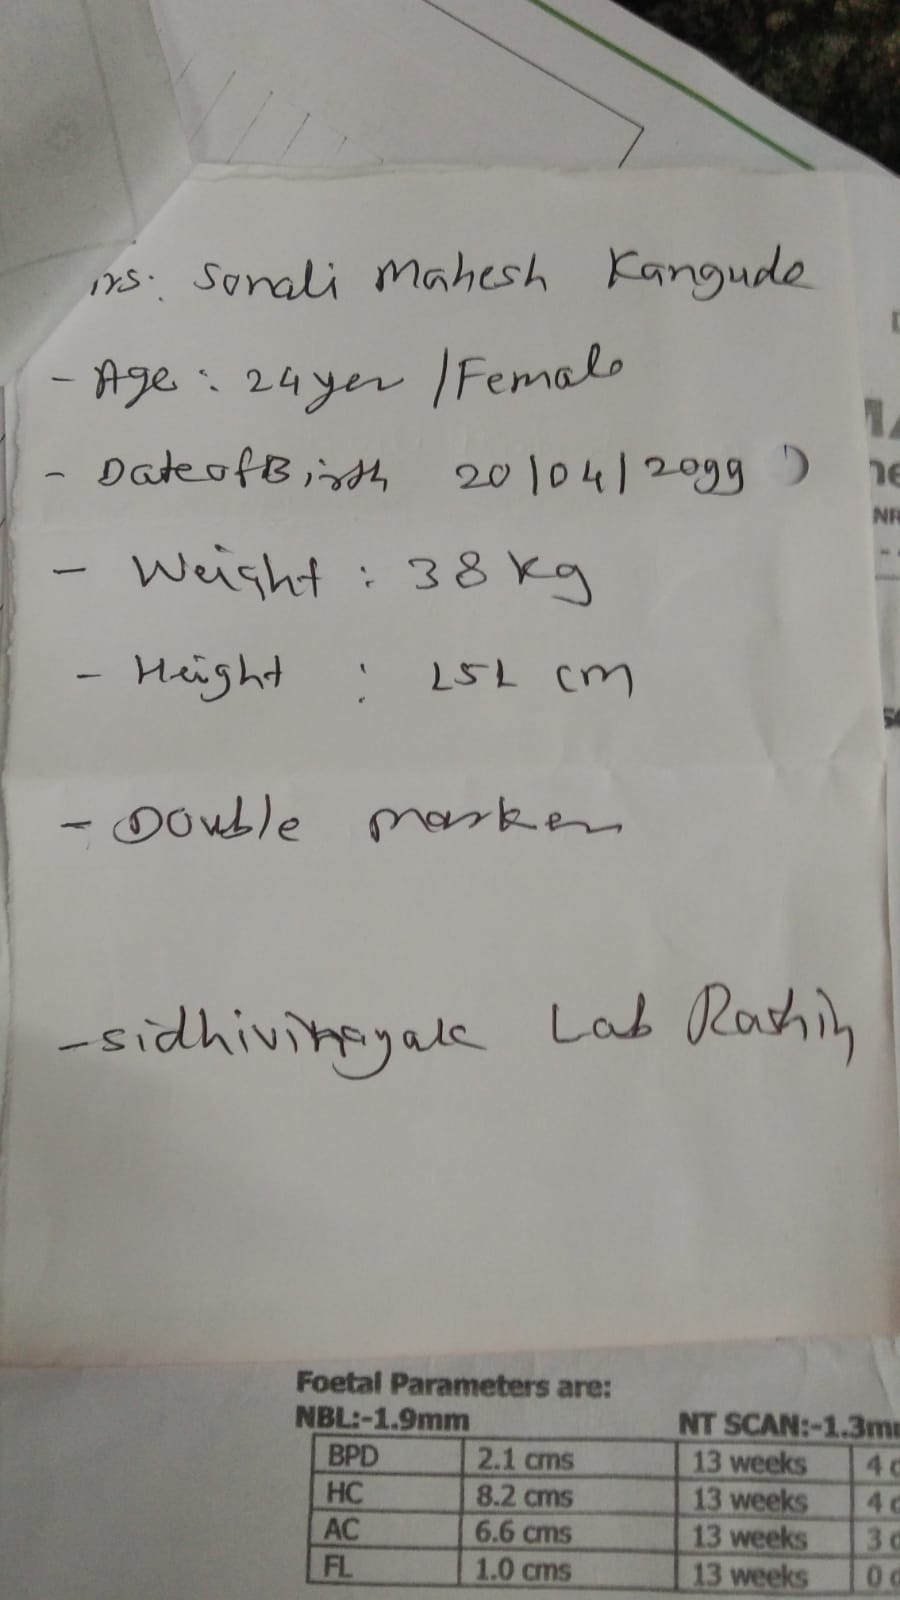 Mrs. Sonali Mahesh Kangude
- Age : 24 yer / Female
- Date of Birth 20/04/2099
- Weight : 38 kg
- Height : 151 cm
- Double marker
- sidhivinayak Lab Rashin
Foetal Parameters are:
NBL:-1.9mm NT SCAN:-1.3m
BPD 2.1 cms 13 weeks 4 d
HC 8.2 cms 13 weeks 4 d
AC 6.6 cms 13 weeks 3 d
FL 1.0 cms 13 weeks 0 d